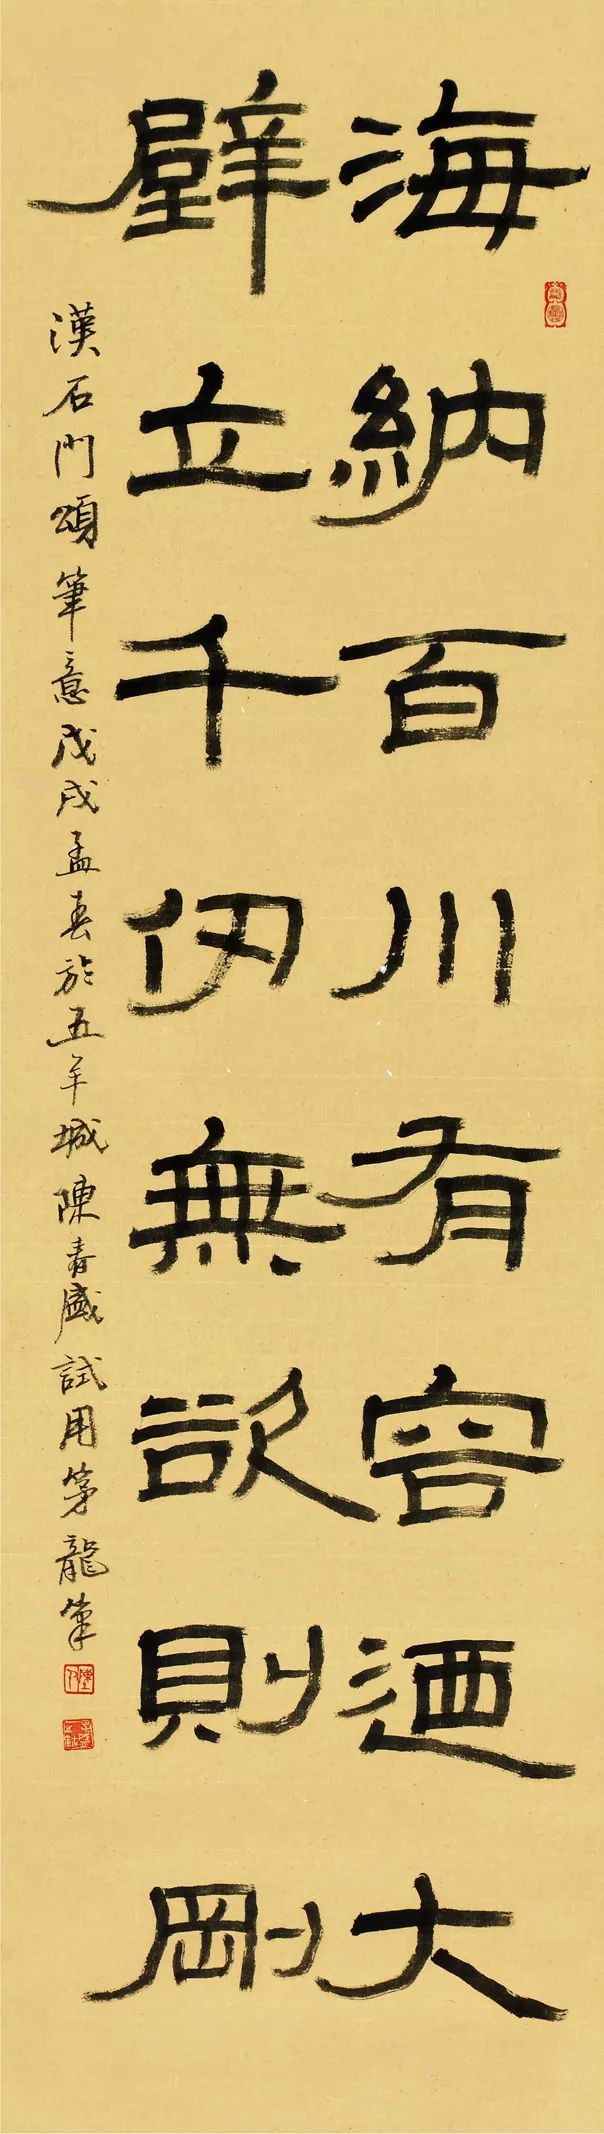 海納百川有容迺大
壁立千仞無欲則剛
漢石門頌筆意戊戌孟春於五羊城陳春盛試用茅龍筆